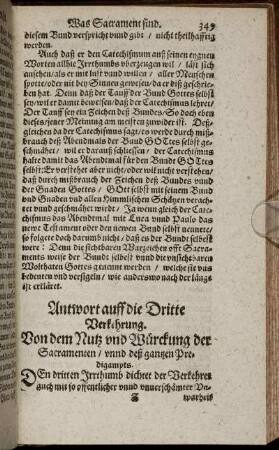 Was Sacrament sind. 349
diesem Bund verspricht vnnd gibt / nicht theilhafftig
werden.
Auch daß er den Catechismum auß seinen eygnen
Worten allhie Irrthumbs vberzeugen wil / läst sich
ansehen / als er mit lust vnnd willen / aller Menschen
spotte / oder nit bey Sinnen gewesen / da er diß geschrie-
ben hat. Denn daß der Tauff der Bund Gottes selbst
sey / wil er damit beweisen / daß der Catechismus lehret /
Der Tauff sey ein Zeichen deß Bundes / So doch eben
dieses / jener Meinung am meisten zuwider ist. Deß-
gleichen da der Catechismus sagt / es werde durch miß-
brauch deß Abendmals der Bund GOttes selbst ge-
schmähet / wil er darauß schliessen / der Catechismus
halte damit das Abendtmal für den Bundt GOttes
selbst: Er verstehet aber nicht / oder wil nicht verstehen /
daß durch mißbrauch der Zeichen deß Bundes vnnd
der Gnaden Gottes / GOtt selbst mit seinem Bund
vnd Gnaden vnd allen Himmlischen Schätzen verach-
tet vnnd geschmähet wirdt / Ja wenn gleich der Cate-
chismus das Abendtmal mit Luca vnnd Paulo das
newe Testament oder den newen Bund selbst nennete /
so folgete doch darumb nicht / daß es der Bund selbest
were: Denn die sichtbaren Warzeichen offt Sacra-
ments weise der Bundt selbest vnd die vnsichtbaren
Wolthaten Gottes genennt werden / welche sie vns
bedeuten vnd versigeln / wie anderswo nach der länge
ist erkläret.
Antwort auff die Dritte
Verkehrung.
Von dem Nutz vnd Würckung der
Sacramenten / vnnd deß gantzen Pre-
digampts.
DEn dritten Irrthumb dichtet der Verkehrer
auch mit so offentlicher vnnd vnuerschämter Vn-
warheit